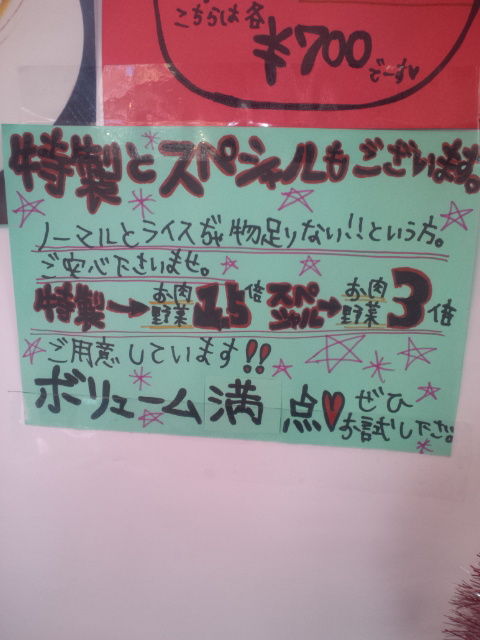 こちらは各
¥700
でーす♥
特製とスペシャルもございます。
ノーマルとライスぢゃ物足りない!!という方。
ご安心下さいませ。
特製→お肉野菜1.5倍 スペシャル→お肉野菜3倍
ご用意しています!!
ボリューム満点♥ぜひお試し下さい。